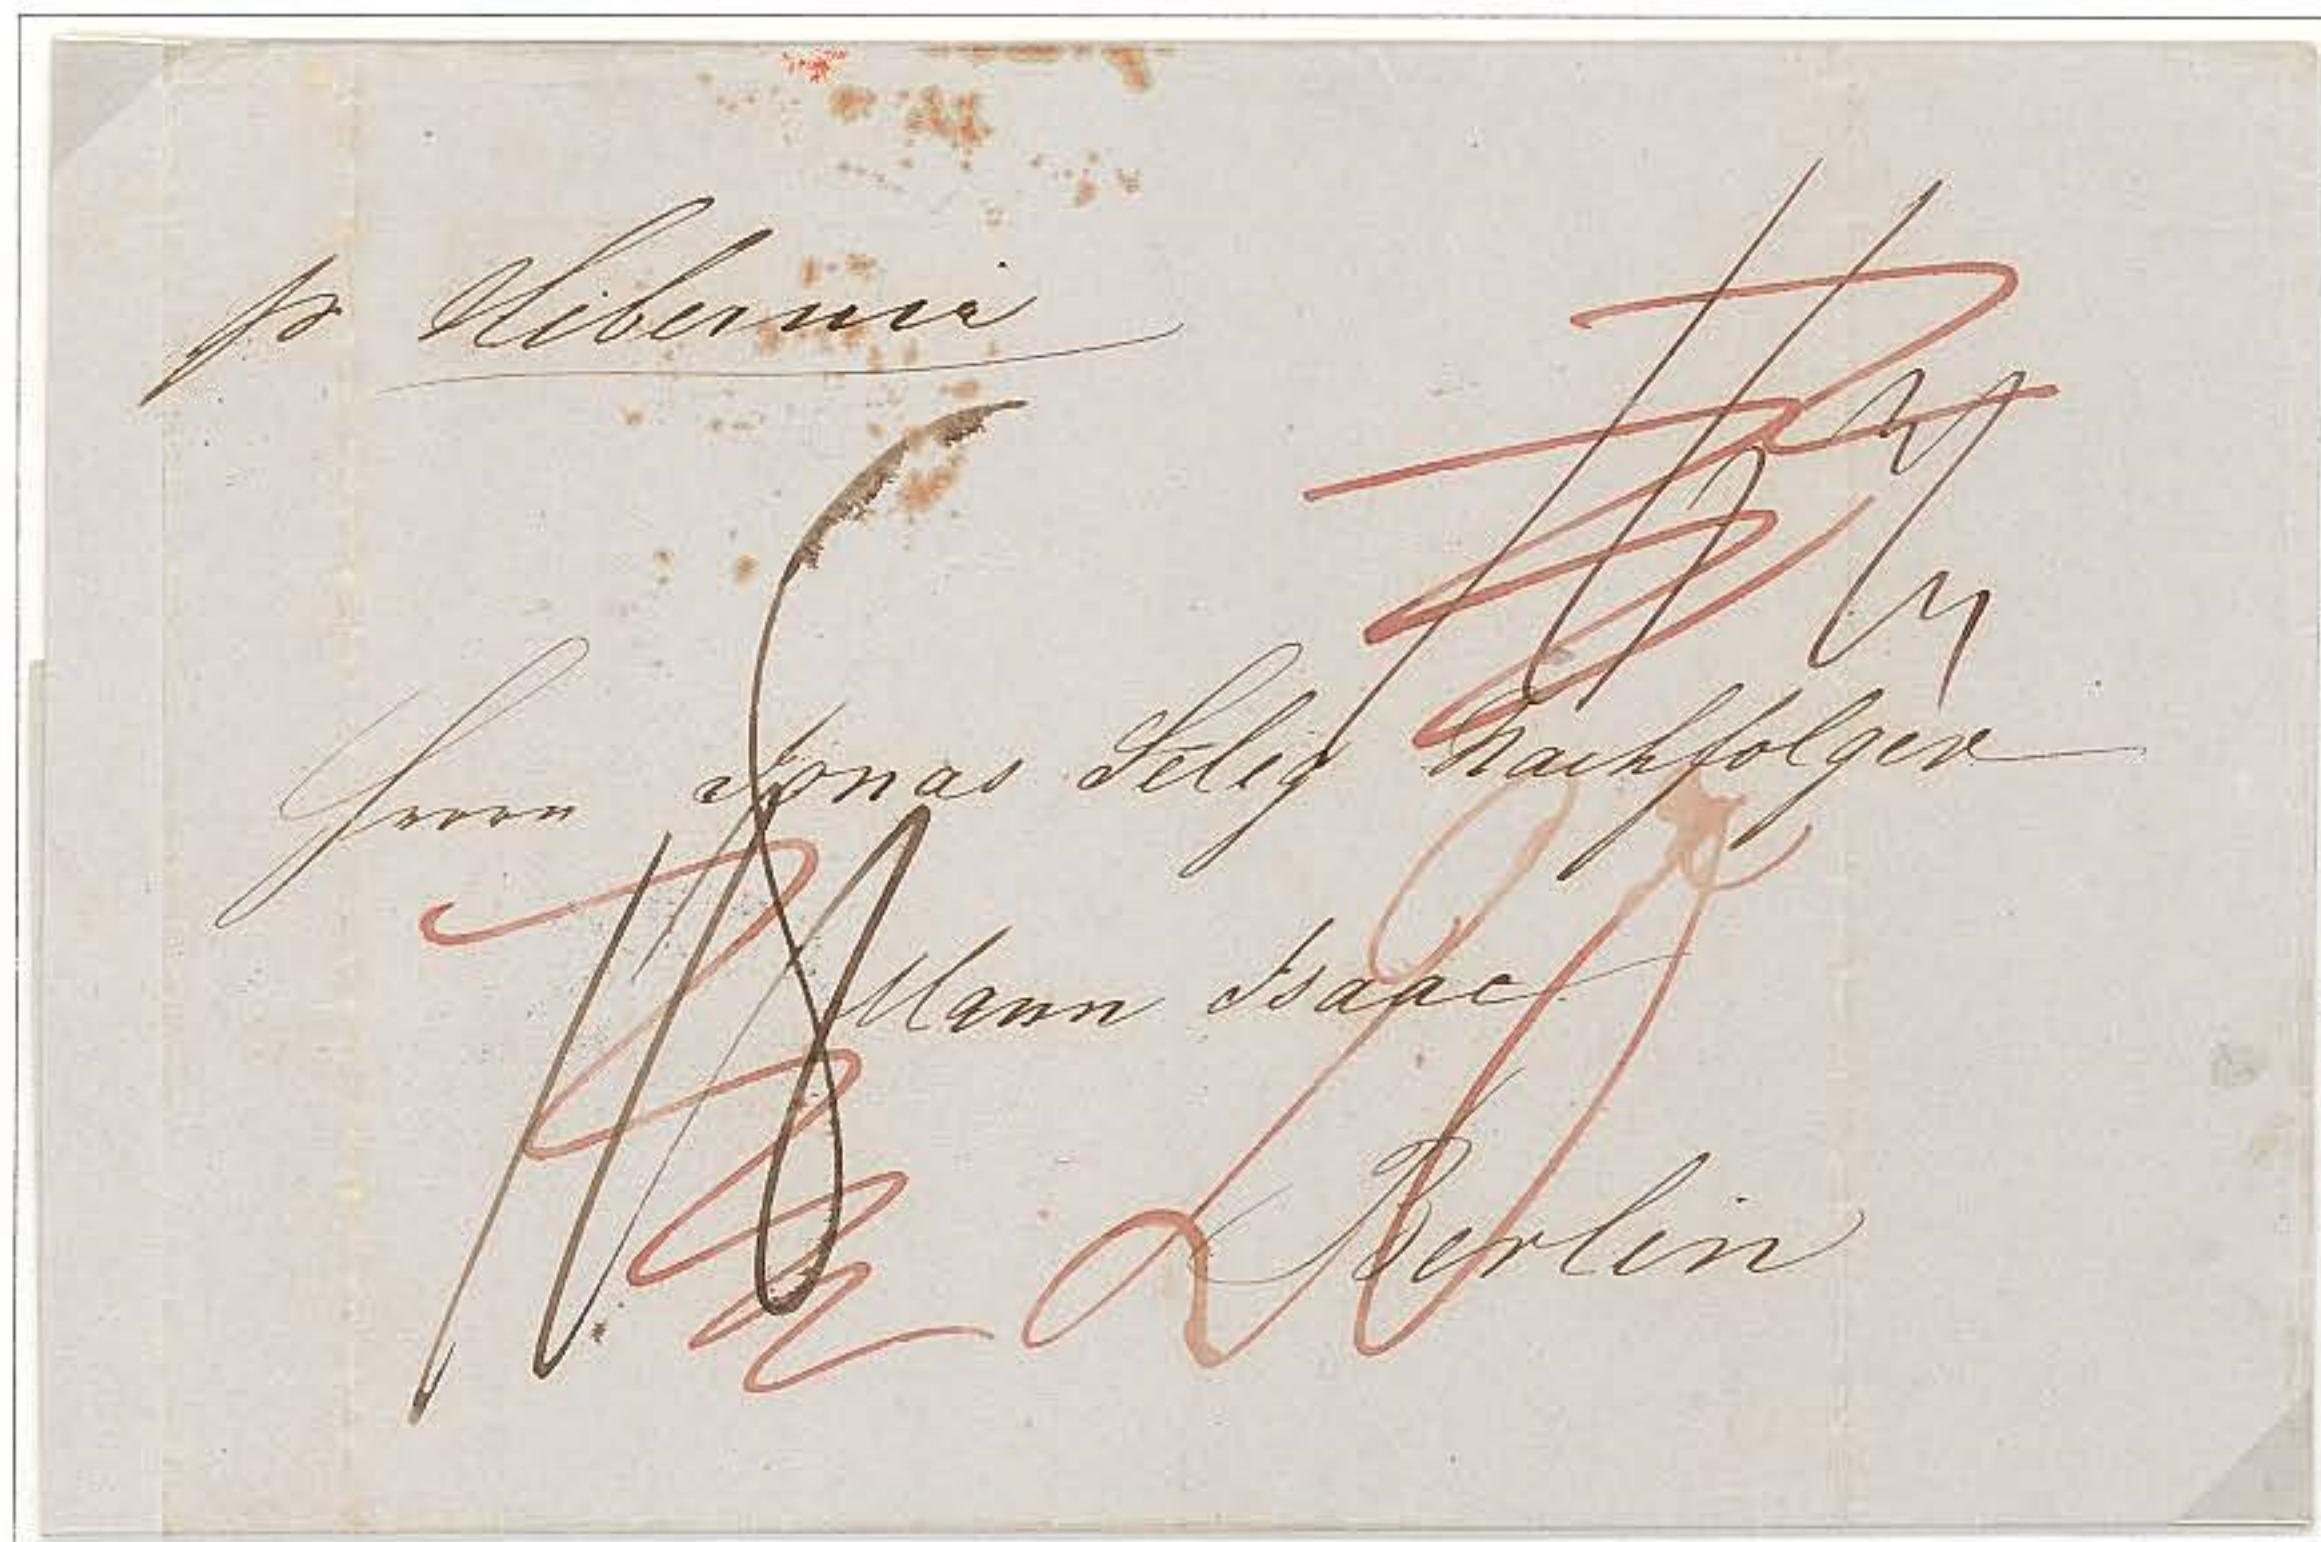 pr Hibernia
Herrn Jonas Selig Nachfolger
Mann Isaac
Berlin